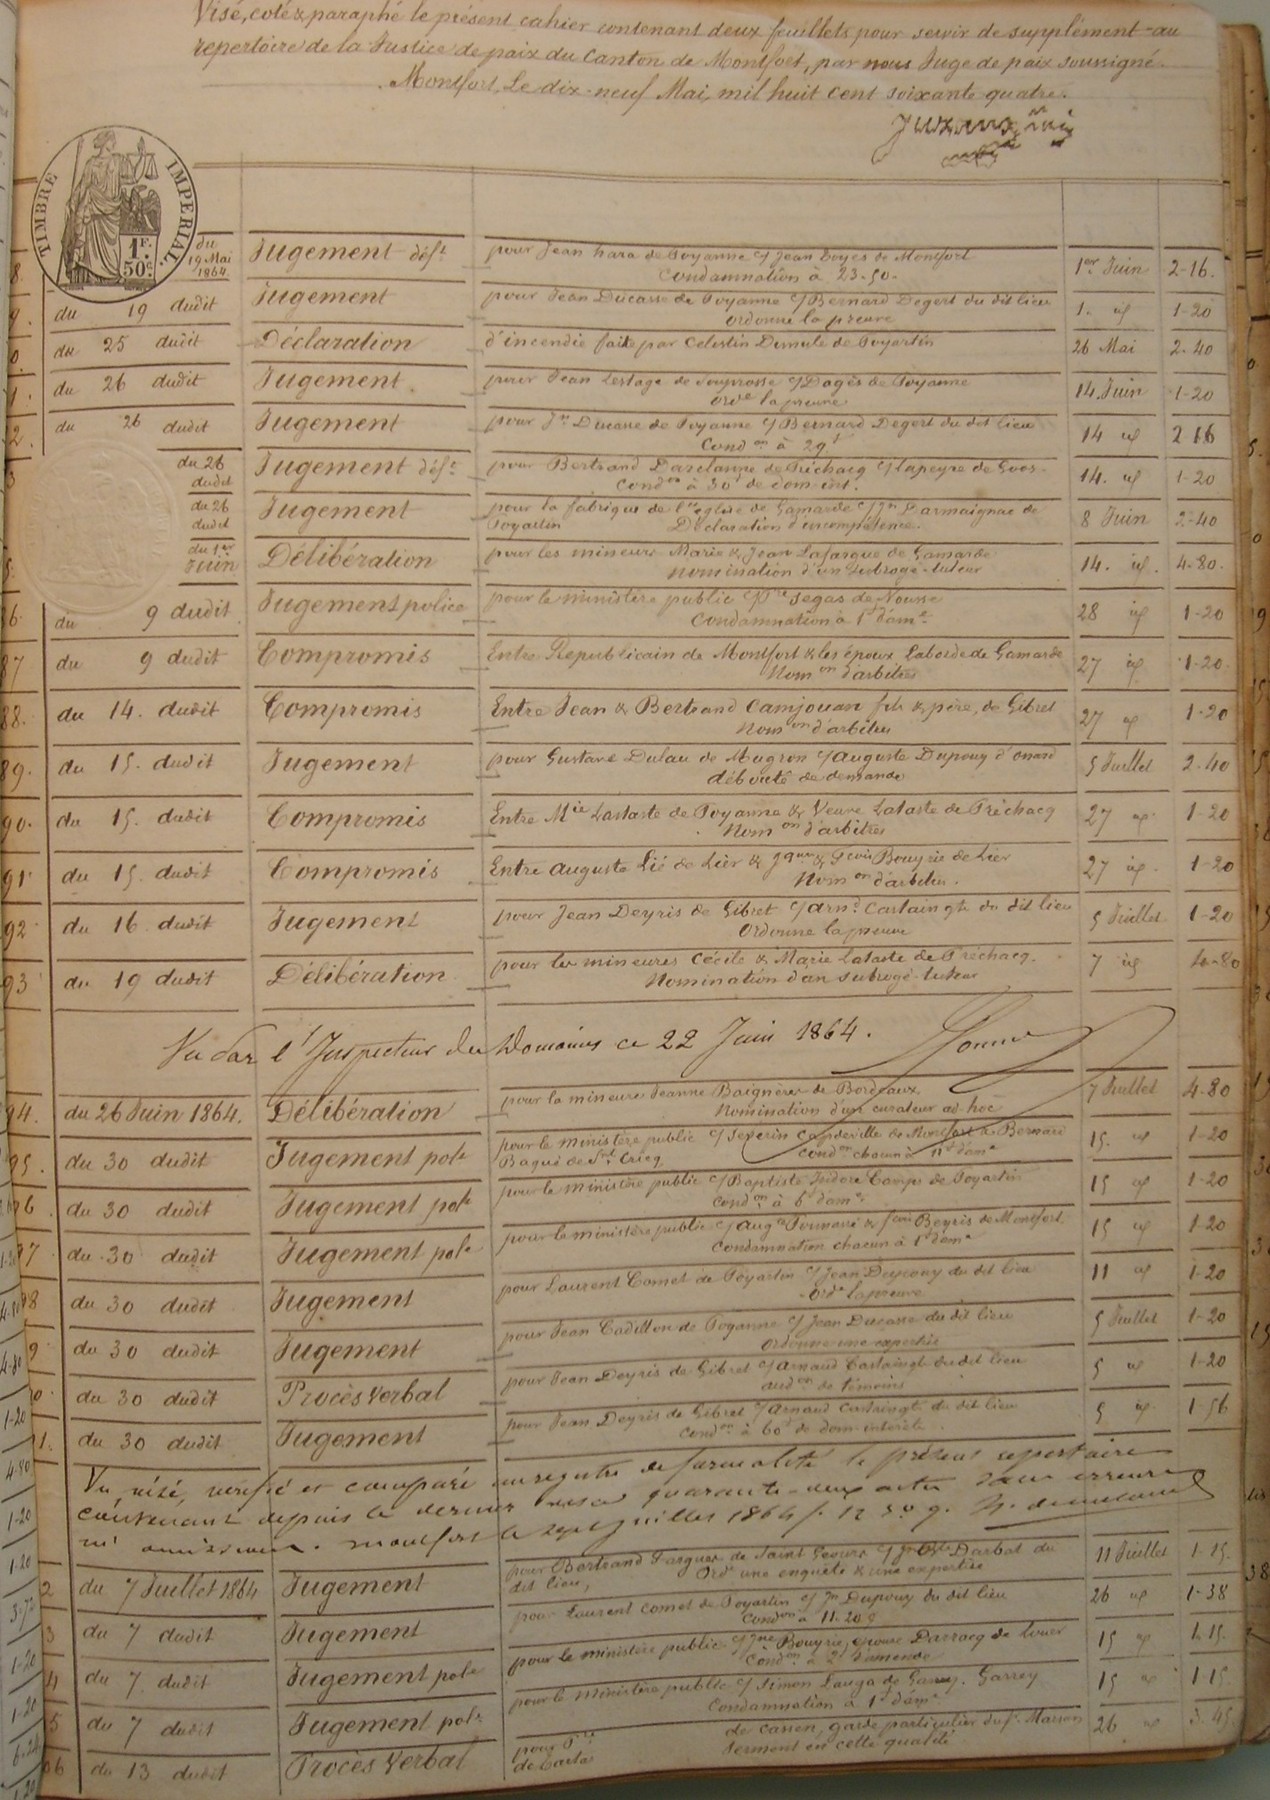 Visé, coté & paraphé le présent cahier contenant deux feuillets pour servir de supplément au
repertoire de la Justice de paix du Canton de Montfort, par nous Juge de paix soussigné.
Montfort, Le dix-neuf Mai, mil huit cent soixante quatre.
TIMBRE IMPERIAL.
1F. 50c.
du 19 Mai 1864. Jugement déf.t pour Jean hara de Poyanne c/ Jean Doyes de Montfort 1er Juin 2-16.
Condamnation à 23-50.
du 19 dudit Jugement pour Jean Ducasse de Poyanne c/ Bernard Degert du dit lieu 1. id 1-20
ordonne la preuve
du 25 dudit Déclaration d'incendie faite par Celestin Demule de Poyartin 26 Mai 2-40
du 26 dudit Jugement pour Jean Lestage de Souprosse c/ Dagès de Poyanne 14 Juin 1-20
ord.e la preuve
du 26 dudit Jugement pour J.n Ducasse de Poyanne c/ Bernard Degert du dit lieu 14 id 2 16
Cond.on à 29f
du 26 dudit Jugement déf.t pour Bertrand Darclanne de Préchacq c/ Lapeyre de Goos. 14. id 1-20
Cond.on à 30f de dom-int.
du 26 dudit Jugement pour la fabrique de l'église de Gamarde c/ J.n Darmaignac de 8 Juin 2-40
Poyartin Déclaration d'incompétence.
du 1er Juin Délibération pour les mineurs Marie & Jean Lafargue de Gamarde 14. id. 4-80.
nomination d'un subrogé-tuteur
86. du 9 dudit Jugement police pour le ministère public c/ P.re Segas de Nousse 28 id 1-20
Condamnation à 1f d'am.e
87 du 9 dudit Compromis Entre Republicain de Montfort & les époux Laborde de Gamarde 27 id 1-20.
Nom.on d'arbitres
88. du 14. dudit Compromis Entre Jean & Bertrand Camjouan fils & père, de Gibret 27 id 1-20
Nom.on d'arbitres
89. du 15. dudit Jugement pour Gustave Dulau de Mugron c/ Auguste Dupouy d'onard 5 Juillet 2-40
débouté de demande
90. du 15. dudit Compromis Entre M.ie Lastaste de Poyanne & Veuve Lataste de Préchacq 27 id 1-20
Nom.on d'arbitres
91. du 15. dudit Compromis Entre Auguste Lié de Lier & Bouyrie de Lier 27 id. 1-20
Nom.on d'arbitres.
92 du 16 dudit Jugement pour Jean Deyris de Gibret c/ Arn.d Castaingt du dit lieu 5 Juillet 1-20
Ordonne la preuve
93 du 19 dudit Délibération pour les mineures Cécile & Marie Lataste de Préchacq. 7 id 4-80
Nomination d'un subrogé-tuteur
Vu par l'Inspecteur des Domaines ce 22 Juin 1864.
94. du 26 Juin 1864. Délibération pour la mineure Jeanne Baignères de Bordeaux 7 Juillet 4-80
Nomination d'un curateur ad hoc
95. du 30 dudit Jugement pol.e pour le ministère public c/ Severin Capdeville de Montfort & Bernard 15. id 1-20
Bagué de S.t Cricq Cond.on chacun à 11f d'am.e
96. du 30 dudit Jugement pol.e pour le ministère public c/ Baptiste Isidore Camps de Poyartin 15 id 1-20
Cond.on à 6f d'am.e
97 du 30 dudit Jugement pol.e pour le ministère public c/ Aug.te & Beyris de Montfort 15 id 1-20
Condamnation chacun à 1f d'am.e
98 du 30 dudit Jugement pour Laurent Comet de Poyartin c/ Jean Dupouy du dit lieu 11 id 1-20
Ord.e la preuve
9 du 30 dudit Jugement pour Jean Cadillon de Poyanne c/ Jean Ducasse du dit lieu 5 Juillet 1-20
Ordonne une expertise
0. du 30 dudit Procès Verbal pour Jean Deyris de Gibret c/ Arnaud Castaingt du dit lieu 5 id 1-20
aud.on de témoins
1. du 30 dudit Jugement pour Jean Deyris de Gibret c/ Arnaud Castaingt du dit lieu 5 id 1-56
Cond.on à 60f de dom-intérêts
Vu, visé, vérifié et comparé au registre de formalité le présent repertoire
contenant depuis le dernier visa quarante-deux actes sans erreurs
ni omissions. Montfort le sept Juillet 1864
2 du 7 Juillet 1864 Jugement pour Bertrand Fargues de Saint Geours c/ Darbat du 11 Juillet 1-15.
dit lieu, Ord.e une enquête & une expertise
3 du 7 dudit Jugement pour Laurent Comet de Poyartin c/ J.n Dupouy du dit lieu 26 id 1-38
Cond.on à 11-20
4 du 7 dudit Jugement pol.e pour le ministère public c/ J.ne Bouyrie, épouse Darracq de Louer 15 id 1-15.
Cond.on à 2f d'amende
5 du 7 dudit Jugement pol.e pour le Ministère public c/ Simon Lauga de Garrey 15 id 1-15.
Condamnation à 1f d'am.e
06 du 13 dudit Procès Verbal pour P.re de Cassen, garde particulier du s.r Marsan 26 id 3-45.
Serment en cette qualité